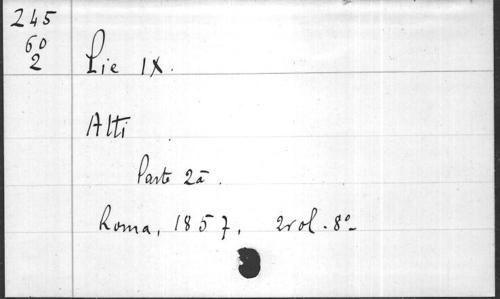 245
60
2
Pie IX.
Atti
Parte 2a.
Roma, 1857, 2 vol. 8º